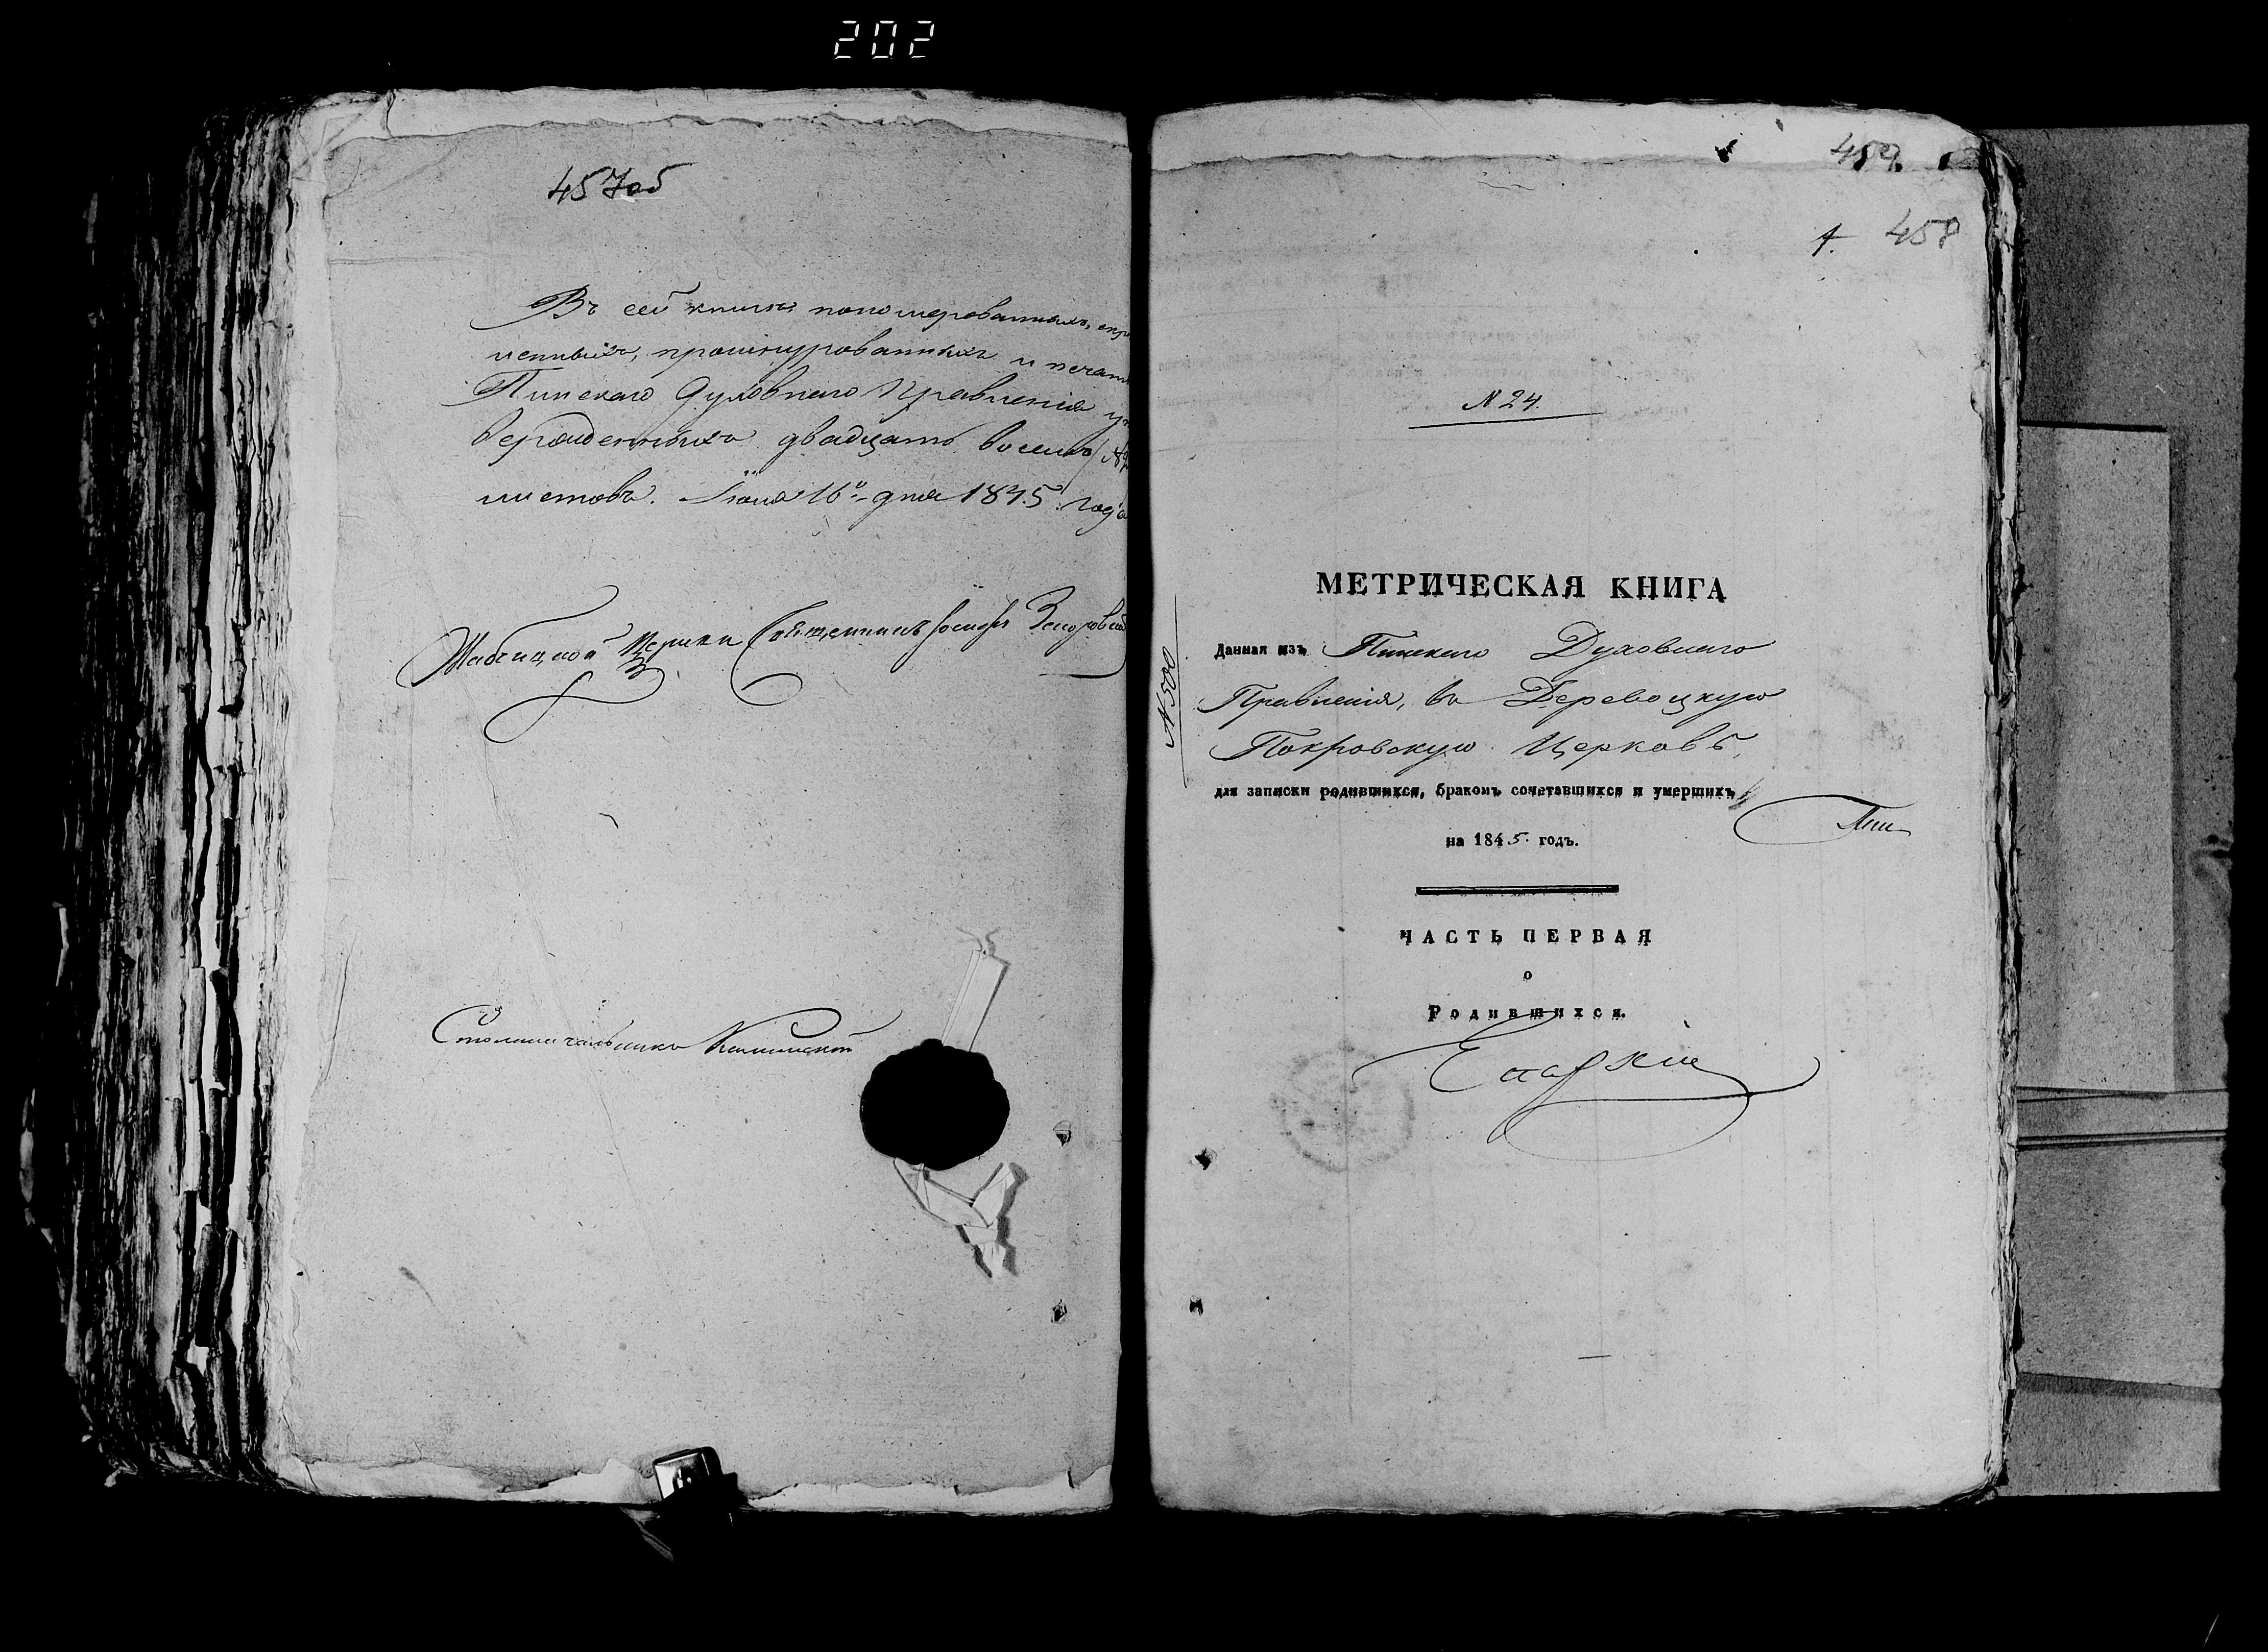 202
457об
Въ сей книгѣ пономерованныхъ, скрѣ
пленныхъ, прошнурованныхъ и печат
Пинскаго Духовнаго Правленія ут
вержденныхъ двадцать восемь
листовъ. Іюня 16º дня 1845 года
Церкви Священникъ Іосифъ
Столоначальникъ
459
1. 458
N 24.
МЕТРИЧЕСКАЯ КНИГА
N 500
Данная изъ Пинскаго Духовнаго
Правленія, въ Деревоцкую
Покровскую Церковь,
для записки родившихся, бракомъ сочетавшихся и умершихъ
на 1845. годъ.
ЧАСТЬ ПЕРВАЯ
о
Родившихся.